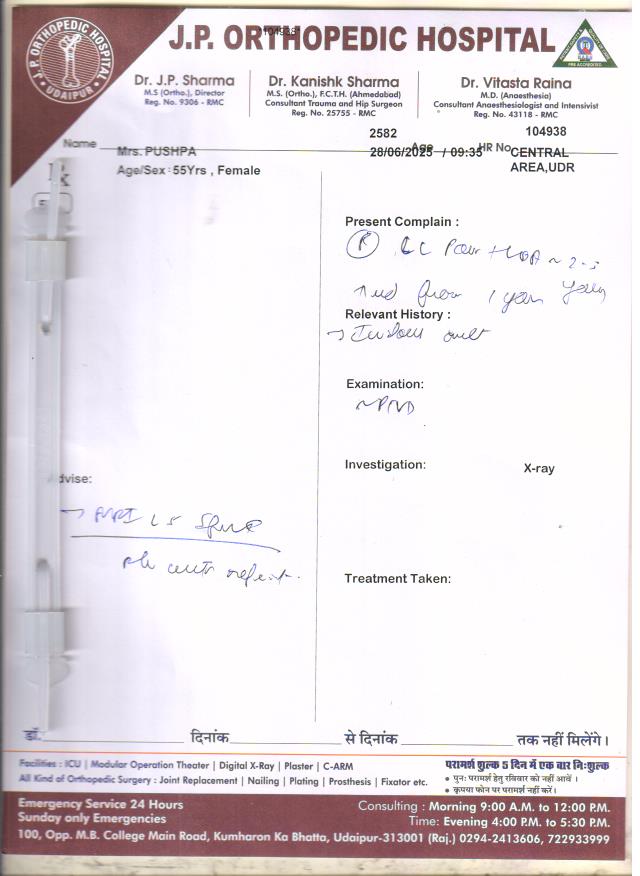 J.P. ORTHOPEDIC HOSPITAL
UDAIPUR
*104938*
J.P. ORTHOPEDIC HOSPITAL
PRE ACCREDITED
Dr. J.P. Sharma
M.S (Ortho.), Director
Reg. No. 9306 - RMC
Dr. Kanishk Sharma
M.S. (Ortho.), F.C.T.H. (Ahmedabad)
Consultant Trauma and Hip Surgeon
Reg. No. 25755 - RMC
Dr. Vitasta Raina
M.D. (Anaesthesia)
Consultant Anaesthesiologist and Intensivist
Reg. No. 43118 - RMC
2582 104938
Name Mrs. PUSHPA Age 28/06/2025 / 09:35 HR No CENTRAL
AREA,UDR
Age/Sex : 55Yrs , Female
Rx
Present Complain :
(R) Pain
from 1 year
Relevant History :
→
Examination:
Investigation: X-ray
dvise:
→ MRI LS Spine
Treatment Taken:
डॉ. दिनांक से दिनांक तक नहीं मिलेंगे।
Facilities : ICU | Modular Operation Theater | Digital X-Ray | Plaster | C-ARM
All Kind of Orthopedic Surgery : Joint Replacement | Nailing | Plating | Prosthesis | Fixator etc.
परामर्श शुल्क 5 दिन में एक बार निःशुल्क
• पुनः परामर्श हेतु रविवार को नहीं आवें ।
• कृपया फोन पर परामर्श नहीं करें।
Emergency Service 24 Hours
Sunday only Emergencies
Consulting : Morning 9:00 A.M. to 12:00 P.M.
Time: Evening 4:00 P.M. to 5:30 P.M.
100, Opp. M.B. College Main Road, Kumharon Ka Bhatta, Udaipur-313001 (Raj.) 0294-2413606, 722933999